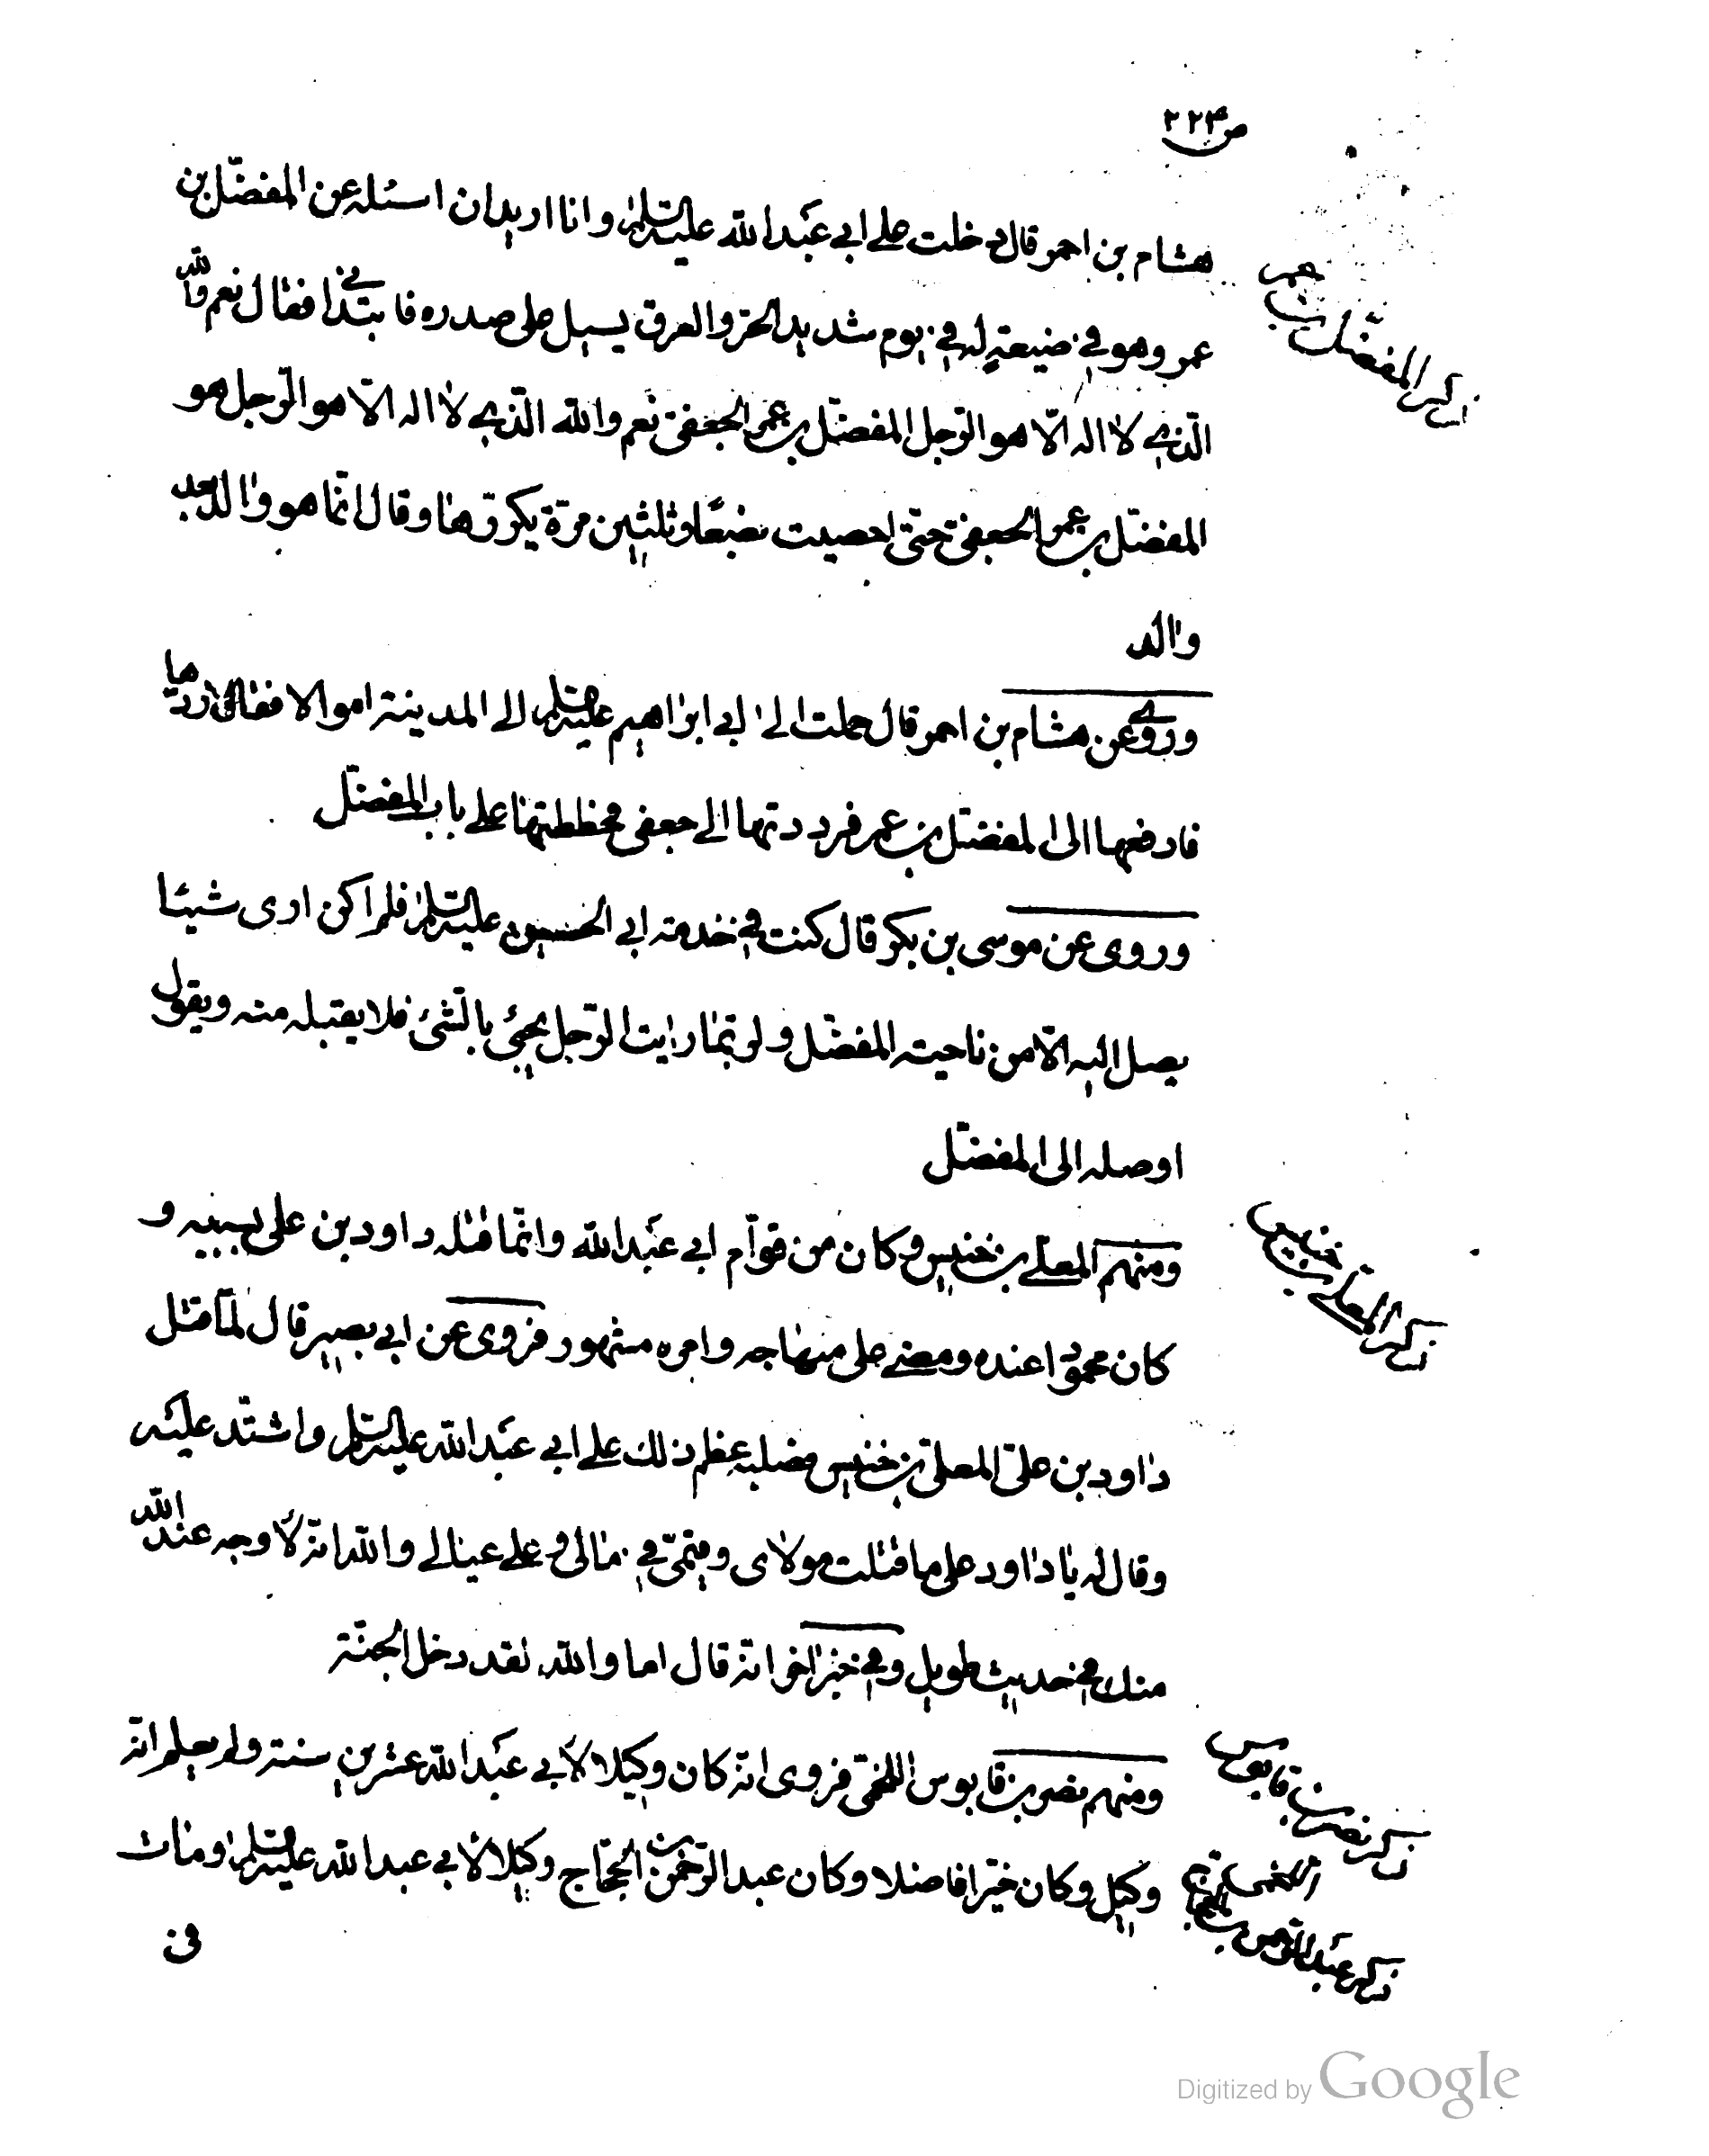 ص٢٢٣
هشام بن احمر قال دخلت على ابي عبد الله عليه السلم وانا اريد ان اسئله عن المفضّل بن
ذكر المفضّل بن عمر
عمر وهو في ضيعةٍ له في يوم شديد الحرّ والعرق يسيل على صدره فابتدانى فقال نعم والله
الّذي لا اله الّا هو الرّجل المفضّل بن عمر الجعفىّ نعم والله الّذي لا اله الّا هو الرّجل هو
المفضّل بن عمر الجعفىّ حتّى احصيت بضعًا وثلثين مرّة يكرّرها وقال انّما هو والد بعد
والد
وروي عن هشام بن احمر قال حملت الى ابي ابراهيم عليه السلم الى المدينة اموالا فقال ردّها
فادفعها الى المفضّل بن عمر فرددتها الى جعفى فحططتها على باب المفضّل
وروى عن موسى بن بكر قال كنت في خدمة ابي الحسن عليه السلم فلم اكن ارى شيئا
يصل اليه الّا من ناحية المفضّل ولربّما رايت الرّجل يجيئ بالشّئ فلا يقبله منه ويقول
اوصله الى المفضّل
ومنهم المعلّى بن خنيس وكان من قوّام ابي عبد الله وانّما قتله داود بن على بسببه و
ذكر المعلّى بن خنيس
كان محمودا عنده ومضى على منهاجه وامره مشهور فروى عن ابي بصير قال لمّا قتل
داود بن علىّ المعلّى بن خنيس فصلبه عظم ذلك على ابي عبد الله عليه السلم واشتدّ عليه
وقال له يا داود على ما قتلت مولاى وقيّمى في مالى وعلى عيالى والله انّه لاوجه عند الله
منك في حديث طويل وفي خبر اخر انّه قال اما والله لقد دخل الجنّة
ومنهم نصر بن قابوس اللخمىّ فروى انّه كان وكيلا لأبي عبد الله عشرين سنة ولم يعلم انّه
ذكر نصر بن قابوس اللخمى
وكيل وكان خيّرا فاضلا وكان عبد الرّحمن بن الحجّاج وكيلا لأبي عبد الله عليه السلم ومات
ذكر عبد الرّحمن بن الحجاج
فى
Digitized by Google